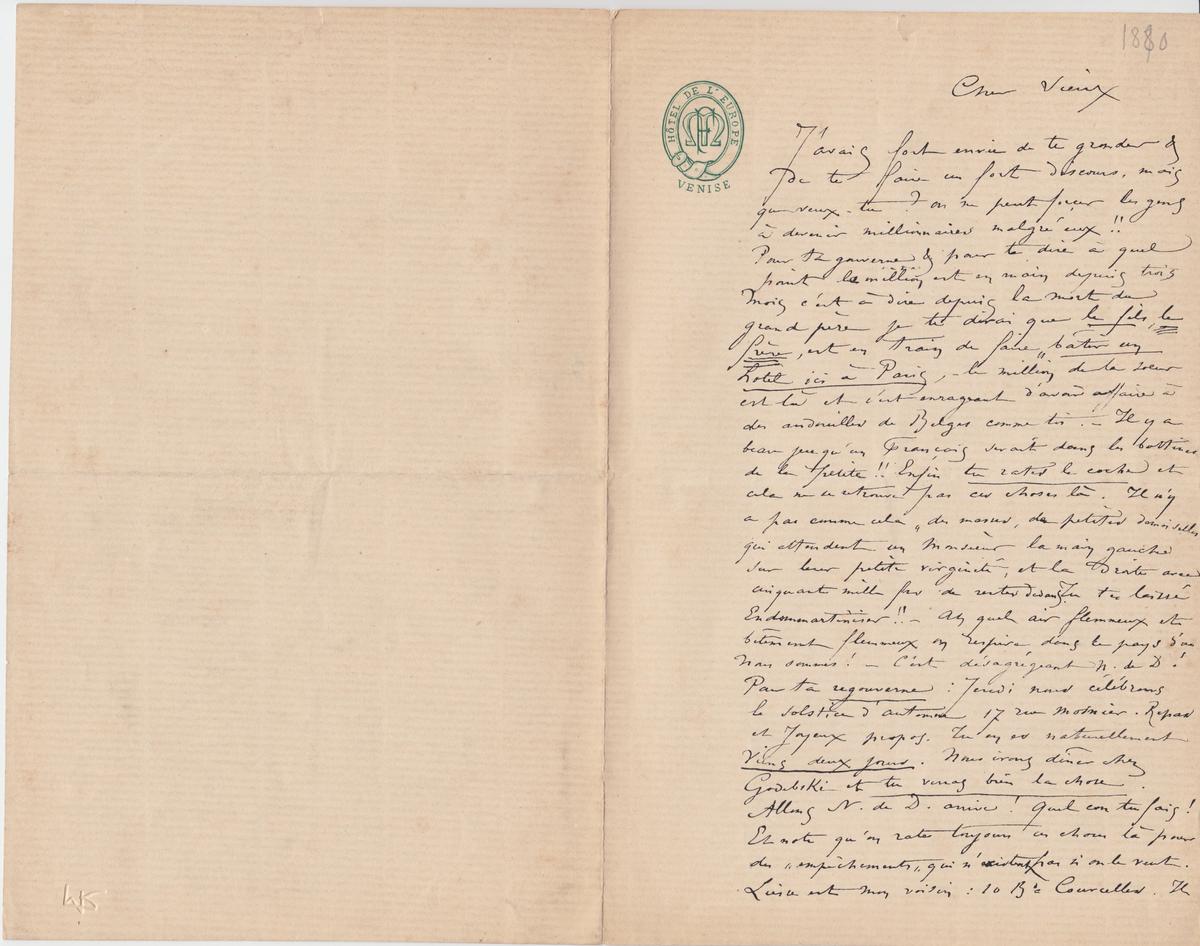 1880
HÔTEL DE L'EUROPE
VENISE
Cher Vieux
J'avais fort envie de te gronder &
de te faire un fort discours, mais
que veux-tu ? on ne peut forcer les gens
à devenir millionnaires malgré eux !!
Pour ta gouverne & pour te dire à quel
point le million est en main depuis trois
mois c'est à dire depuis la mort du
grand père je te dirai que le fils, le
frère, est en train de faire bâtir un
hotel ici à Paris, - le million de la soeur
est là et c'est enrageant d'avoir affaire à
des andouilles de Belges comme toi ! - Il y a
beau jeu qu'un Français serait dans les bottines
de la petite !! Enfin tu rates le coche et
cela ne se retrouve pas ces choses là. Il n'y
a pas comme cela „des masses, de petites demoiselles
qui attendent un Monsieur la main gauche
sur leur petite virginité, et la Droite avec
cinquante mille frs de rentes dedans. Tu t'es laissé
Endommartiniser !! - Ah quel air flemmeux et
bêtement flemmeux on respire dans le pays d'où
nous sommes ! - C'est désagrégeant N. de D !
Par ta regouverne : Jeudi nous célébrons
le solstice d'automne 17 rue Mosnier. Repas
et Joyeux propos. Tu en es naturellement
Viens deux jours. Nous irons dîner chez
Godebski et tu verras bien la chose.
Allons N. de D. arrive ! Quel con tu fais !
Et note qu'on rate toujours ces choses là pour
des „empêchements„ qui n'existent pas si on le veut.
Liesse est mon voisin : 10 Bd Courcelles. Il